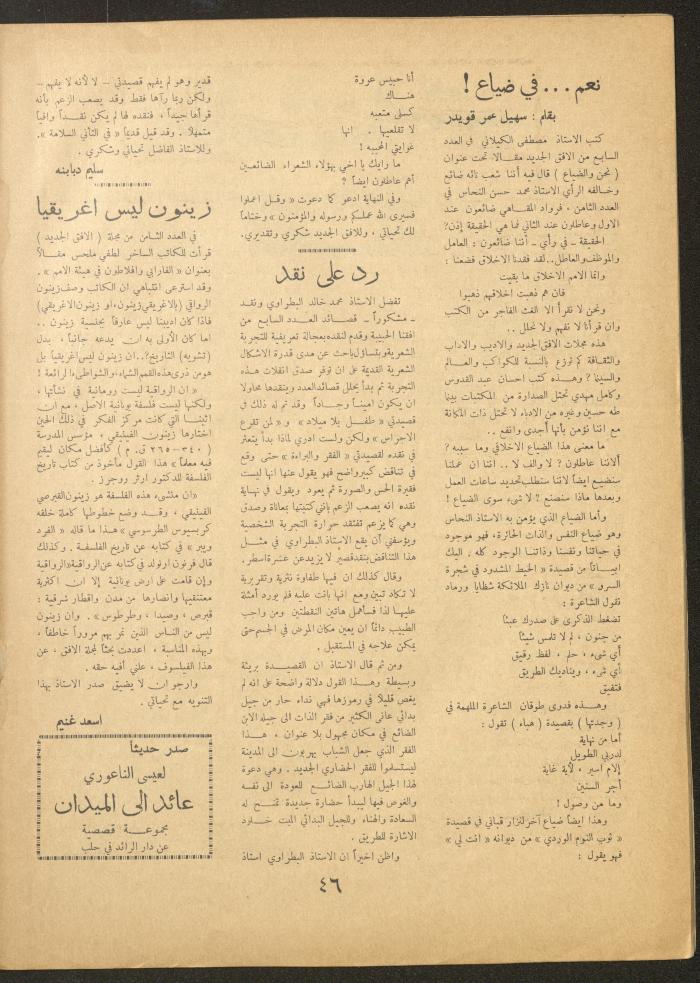 نعم ... في ضياع !
بقلم : سهيل عمر قويدر
كتب الاستاذ مصطفى الكيلاني في العدد
السابع من الافق الجديد مقالا تحت عنوان
( نحن والضياع ) قال فيه أننا شعب تائه ضائع
وخالفه الرأي الاستاذ محمد حسن النحاس في
العدد الثامن ، فرواد المقاهي ضائعون عند
الاول وعاطلون عند الثاني فما هي الحقيقة إذن؟
الحقيقة ـ في رأي ـ أننا ضائعون : العامل
والموظف والعاطل .. لقد فقدنا الاخلاق فضعنا :
وانما الامم الاخلاق ما بقيت
فان هم ذهبت اخلاقهم ذهبوا
ونحن لا نقرأ الا الغث الفاجر من الكتب
وان قرأنا لا نفهم ولا نحلل ..
هذه مجلات الافق الجديد والاديب والاداب
والثقافة كم توزع بالنسبة للكواكب والعالم
والسينما ? وهذه كتب احسان عبد القدوس
وكامل مهدي تحتل الصدارة من المكتبات بينما
طه حسين وغيره من الادباء لا تحتل ذات المكانة
مع اننا نؤمن بأنها أجدى وانفع ..
ما معنى هذا الضياع الاخلاقي وما سببه ؟
ألاننا عاطلون ? لا والف لا .. اننا ان عملنا
سنضيع ايضاً لاننا سنطلب تحديد ساعات العمل
وبعدها ماذا سنصنع ? لا شيء سوى الضياع !
وأما الضياع الذي يؤمن به الاستاذ النحاس
وهو ضياع النفس والذات الحائرة، فهو موجود
في حياتنا ونفسنا وذاتنا الوجود كله . اليك
ابياتاً من قصيدة « الخيط المشدود في شجرة
السرو » من ديوان نازك الملائكة شظايا ورماد
تقول الشاعرة :
تضغط الذكرى على صدرك عبئا
من جنون ، ثم لا تلمس شيئا
أي شيء ، حلم ، لفظ رقيق
أي شيء ، ويناديك الطريق
فتفيق
وهذه فدوى طوقان الشاعرة الملهمة في
( وجدتها ) بقصيدة ( هباء ) تقول :
أما من نهاية
لدربي الطويل
إلام اسير ، لأية غاية
أجر السنين
وما من وصول !
وهذا ايضاً ضياع آخر لنزار قباني في قصيدة
« ثوب النوم الوردي » من ديوانه « انت لي »
فهو يقول :
أنا حبيس عروة
هناك
كسلى متعبه
لا تقلعيها . انها
غوايتي المحببه !
ما رايك يا اخي بهؤلاء الشعراء الضائعين
أهم عاطلون ايضاً ?
وفي النهاية ادعو كما دعوت « وقل اعملوا
فسيرى الله عملكم ورسوله والمؤمنون » وختاماً
لك تحياتي ، وللافق الجديد شكري وتقديري .
رد على نقد
تفضل الاستاذ محمد خالد البطراوي ونقد
ـ مشكوراً ـ قصائد العدد السابع من
افقنا الحبيبة وقدم لنقده بعجالة تعريفية للتجربة
الشعرية وبتساؤل باحث عن مدى قدرة الاشكال
الشعرية القديمة على ان توفر صدق انفلات هذه
التجربة ثم بدأ يحلل قصائد العدد وينقدها محاولا
ان يكون اميناً وجاداً وقد تم له ذلك في
قصيدتي « طفل بلا ميلاد » و « لمن تقرع
الاجراس » ولكن ولست ادري لماذا بدأ يتعثر
في نقده لقصيدتي « الفقر والبراءة » حتى وقع
في تناقض كبير واضح فهو يقول عنها انها ليست
فقيرة الحس والصورة ثم يعود ويقول في نهاية
نقده انه يصعب الزعم بأني كتبتها بمعاناة وصدق
وهي كما يزعم تفتقد حرارة التجربة الشخصية
ويؤسفني أن يقع الاستاذ البطراوي في مثل
هذا التناقض بنقد قصير لا يزيد عن عشرة اسطر .
وقال كذلك ان فيها طفاوة نثرية وتقريرية
لا تكاد تبين ومع انها بانت عليه فلم يورد أمثلة
عليها لذا فسأهمل هاتين النقطتين ومن واجب
الطبيب دائماً ان يعين مكان المرض في الجسم حتى
يمكن علاجه في المستقبل .
ومن ثم قال الاستاذ ان القصيدة بريئة
وبسيطة وهذا القول دلالة واضحة على انه لم
يغص قليلاً في رموزها فهي نداء حار من جيل
بدائي عانى الكثير من فقر الذات الى جيله الابن
الضائع في مكان مجهول بلا عنوان ، هذا
الفقر الذي جعل الشباب يهربون الى المدينة
ليستسلموا للفقر الحضاري الجديد . وهي دعوة
لهذا الجيل الهارب الضائع للعودة الى نفسه
والغوص فيها ليبدأ حضارة جديدة تمنح له
السعادة والهناء وللجيل البدائي الميت خلود
الاشارة للطريق .
واظن اخيراً ان الاستاذ البطراوي استاذ
قدير وهو لم يفهم قصيدتي ـ لا لأنه لا يفهم ـ
ولكن ربما رآها فقط وقد يصعب الزعم بأنه
قرأها جيداً ، فنقده لها لم يكن نقداً واقياً
متمهلاً . وقد قيل قديماً « في التأني السلامة ».
وللاستاذ الفاضل تحياتي وشكري .
سليم دبابنه
زينون ليس اغريقيا
في العدد الثامن من مجلة ( الافق الجديد )
قرأت للكاتب الساخر لطفي ملحس مقالاً
بعنوان « الفارابي وافلاطون في هيئة الامم » .
وقد استرعى انتباهي ان الكاتب وصف زينون
الرواقي ( بالاغريقي زينون، او زينون الاغريقي)
فاذا كان اديبنا ليس عارفاً بجنسية زينون ..
اما كان الأولى به ان يدعه جانباً ، بدل
(تشويه) التاريخ؟ .. ان زينون ليس اغريقياً بل
هو من ذرى هذه القمم الشماء، والشواطىء الرائعة !
« ان الرواقية ليست رومانية في نشأتها ،
ولكنها ليست فلسفة يونانية الاصل ، مع ان
اثينا التي كانت مركز الفكر في ذلك الحين
اختارها زينون الفينيقي ، مؤسس المدرسة
( ٣٤٠ ـ ٢٦٥ ق . م ) كأفضل مكان ليقيم
فيه معلماً » هذا القول مأخوذ من كتاب تاريخ
الفلسفة للدكتور ارثر روجرز .
« ان منشىء هذه الفلسفة هو زينون القبرصي
الفينيقي ، وقد وضع خطوطها كاملة خلفه
كريسيوس الطرسوسي » هذا ما قاله « الفرد
ويبر » في كتابه عن تاريخ الفلسفة . وكذلك
قال فرنون ارنولد في كتابه عن الرواقية « الرواقية
وإن قامت على ارض يونانية إلا ان اكثرية
معتنقيها وانصارها من مدن واقطار شرقية :
قبرص ، وصيدا ، وطرطوس » . وان زينون
ليس من الناس الذين نمر بهم مروراً خاطفاً ،
وبهذه المناسبة ، اعددت بحثاً لمجلة الافق ، عن
هذا الفيلسوف ، علني أفيه حقه .
وارجو ان لا يضيق صدر الاستاذ بهذا
التنويه مع تحياتي .
اسعد غنيم
صدر حديثاً
لعيسى الناعوري
عائد الى الميدان
مجموعة قصصية
عن دار الرائد في حلب
٤٦